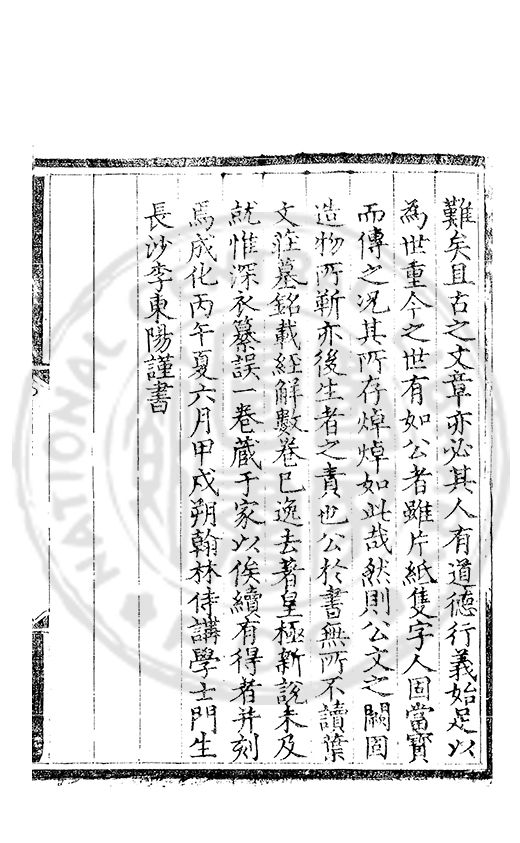 難矣且古之文章亦必其人有道德行義始足以
為世重今之世有如公者雖片紙隻字人固當寳
而傳之况其所存焯焯如此哉然則公文之闕固
造物所靳亦後生者之責也公於書無所不讀葉
文莊墓銘載經解數卷巳逸去著皇極新說未及
就惟深衣纂誤一卷蔵于家以俟續有得者并刻
焉成化丙午夏六月甲戍朔翰林侍講學士門生
長沙李東陽謹書
NATIONAL